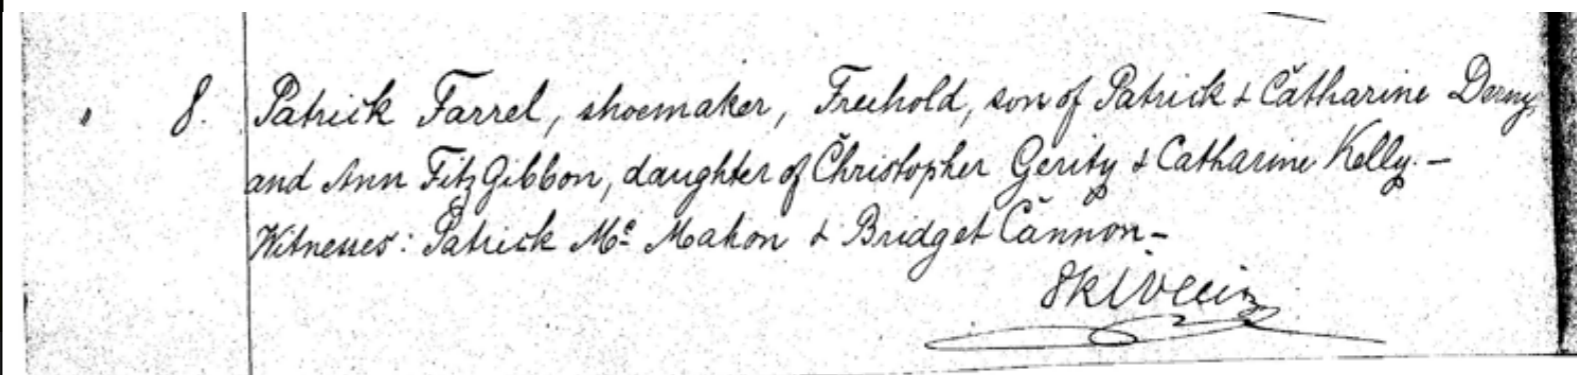 " 8. Patrick Farrel, shoemaker, Freehold, son of Patrick & Catharine
and Ann FitzGibbon, daughter of Christopher Gerity & Catharine Kelly. -
Witnesses: Patrick Mc Mahon & Bridget Cannon -